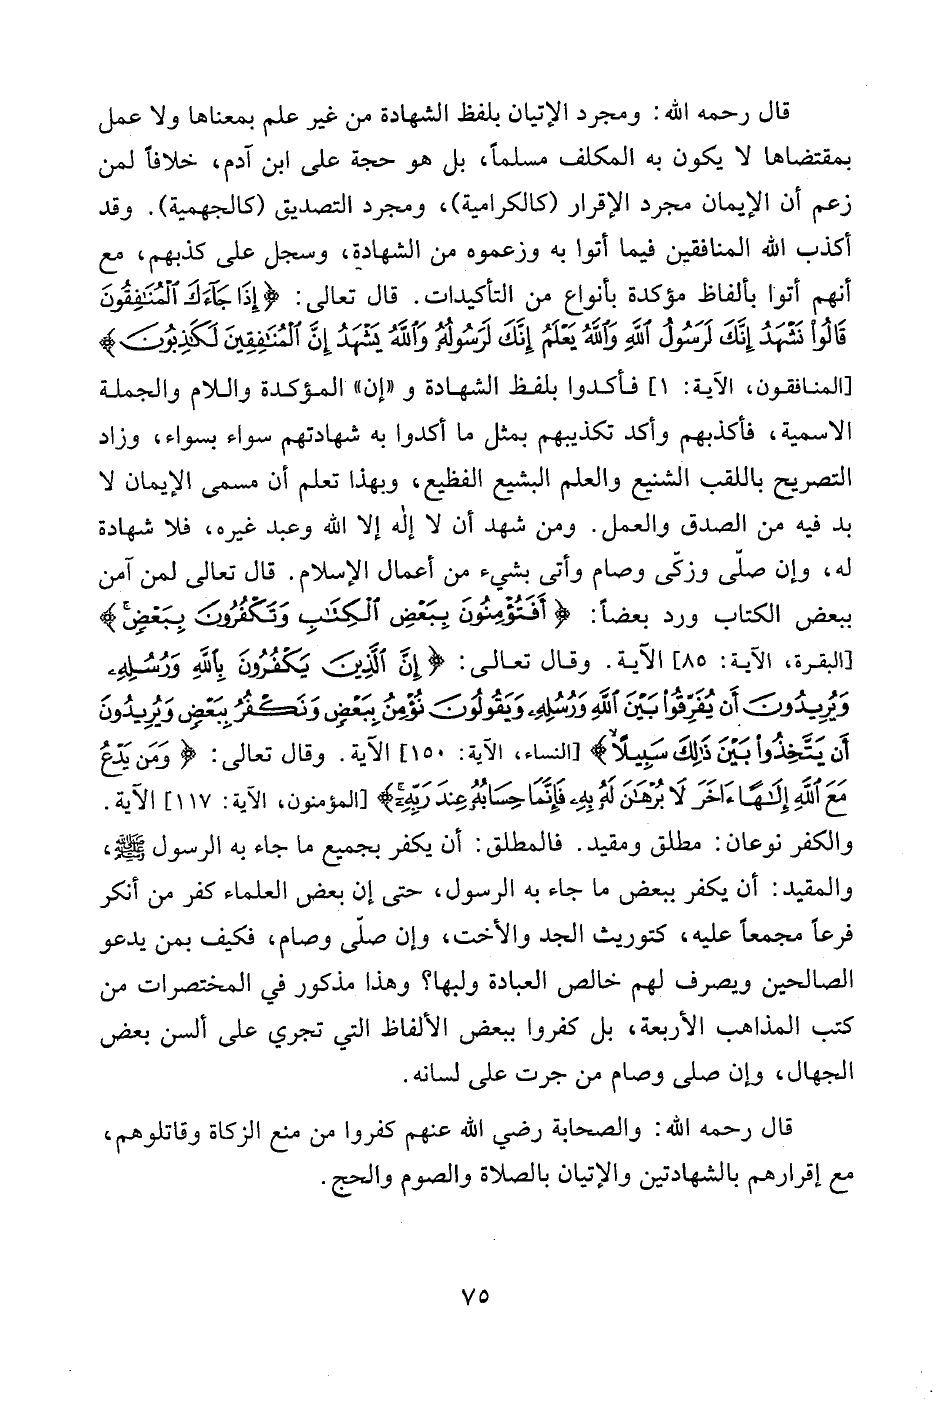 قال رحمه الله: ومجرد الإتيان بلفظ الشهادة من غير علم بمعناها ولا عمل
بمقتضاها لا يكون به المكلف مسلماً، بل هو حجة على ابن آدم، خلافاً لمن
زعم أن الإيمان مجرد الإقرار (كالكرامية)، ومجرد التصديق (كالجهمية). وقد
أكذب الله المنافقين فيما أتوا به وزعموه من الشهادة، وسجل على كذبهم، مع
أنهم أتوا بألفاظ مؤكدة بأنواع من التأكيدات. قال تعالى: ﴿إِذَا جَآءَكَ ٱلْمُنَٰفِقُونَ
قَالُوا۟ نَشْهَدُ إِنَّكَ لَرَسُولُ ٱللَّهِ وَٱللَّهُ يَعْلَمُ إِنَّكَ لَرَسُولُهُۥ وَٱللَّهُ يَشْهَدُ إِنَّ ٱلْمُنَٰفِقِينَ لَكَٰذِبُونَ﴾
[المنافقون، الآية: ١] فأكدوا بلفظ الشهادة و «إن» المؤكدة واللام والجملة
الاسمية، فأكذبهم وأكد تكذيبهم بمثل ما أكدوا به شهادتهم سواء بسواء، وزاد
التصريح باللقب الشنيع والعلم البشيع الفظيع، وبهذا تعلم أن مسمى الإيمان لا
بد فيه من الصدق والعمل. ومن شهد أن لا إلٰه إلا الله وعبد غيره، فلا شهادة
له، وإن صلّى وزكّى وصام وأتى بشيء من أعمال الإسلام. قال تعالى لمن آمن
ببعض الكتاب ورد بعضاً: ﴿أَفَتُؤْمِنُونَ بِبَعْضِ ٱلْكِتَٰبِ وَتَكْفُرُونَ بِبَعْضٍ ۚ﴾
[البقرة، الآية: ٨٥] الآية. وقال تعالى: ﴿إِنَّ ٱلَّذِينَ يَكْفُرُونَ بِٱللَّهِ وَرُسُلِهِۦ
وَيُرِيدُونَ أَن يُفَرِّقُوا۟ بَيْنَ ٱللَّهِ وَرُسُلِهِۦ وَيَقُولُونَ نُؤْمِنُ بِبَعْضٍ وَنَكْفُرُ بِبَعْضٍ وَيُرِيدُونَ
أَن يَتَّخِذُوا۟ بَيْنَ ذَٰلِكَ سَبِيلًا ۙ﴾ [النساء، الآية: ١٥٠] الآية. وقال تعالى: ﴿وَمَن يَدْعُ
مَعَ ٱللَّهِ إِلَٰهًا ءَاخَرَ لَا بُرْهَٰنَ لَهُۥ بِهِۦ فَإِنَّمَا حِسَابُهُۥ عِندَ رَبِّهِۦٓ ۚ﴾ [المؤمنون، الآية: ١١٧] الآية.
والكفر نوعان: مطلق ومقيد. فالمطلق: أن يكفر بجميع ما جاء به الرسول ﷺ،
والمقيد: أن يكفر ببعض ما جاء به الرسول، حتى إن بعض العلماء كفر من أنكر
فرعاً مجمعاً عليه، كتوريث الجد والأخت، وإن صلّى وصام، فكيف بمن يدعو
الصالحين ويصرف لهم خالص العبادة ولبها؟ وهذا مذكور في المختصرات من
كتب المذاهب الأربعة، بل كفروا ببعض الألفاظ التي تجري على ألسن بعض
الجهال، وإن صلى وصام من جرت على لسانه.
قال رحمه الله: والصحابة رضي الله عنهم كفروا من منع الزكاة وقاتلوهم،
مع إقرارهم بالشهادتين والإتيان بالصلاة والصوم والحج.
٧٥